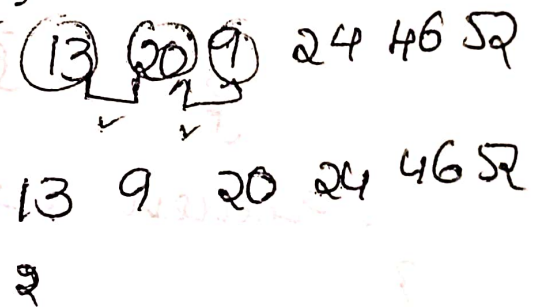 13 20 9 24 46 52
13 9 20 24 46 52
2